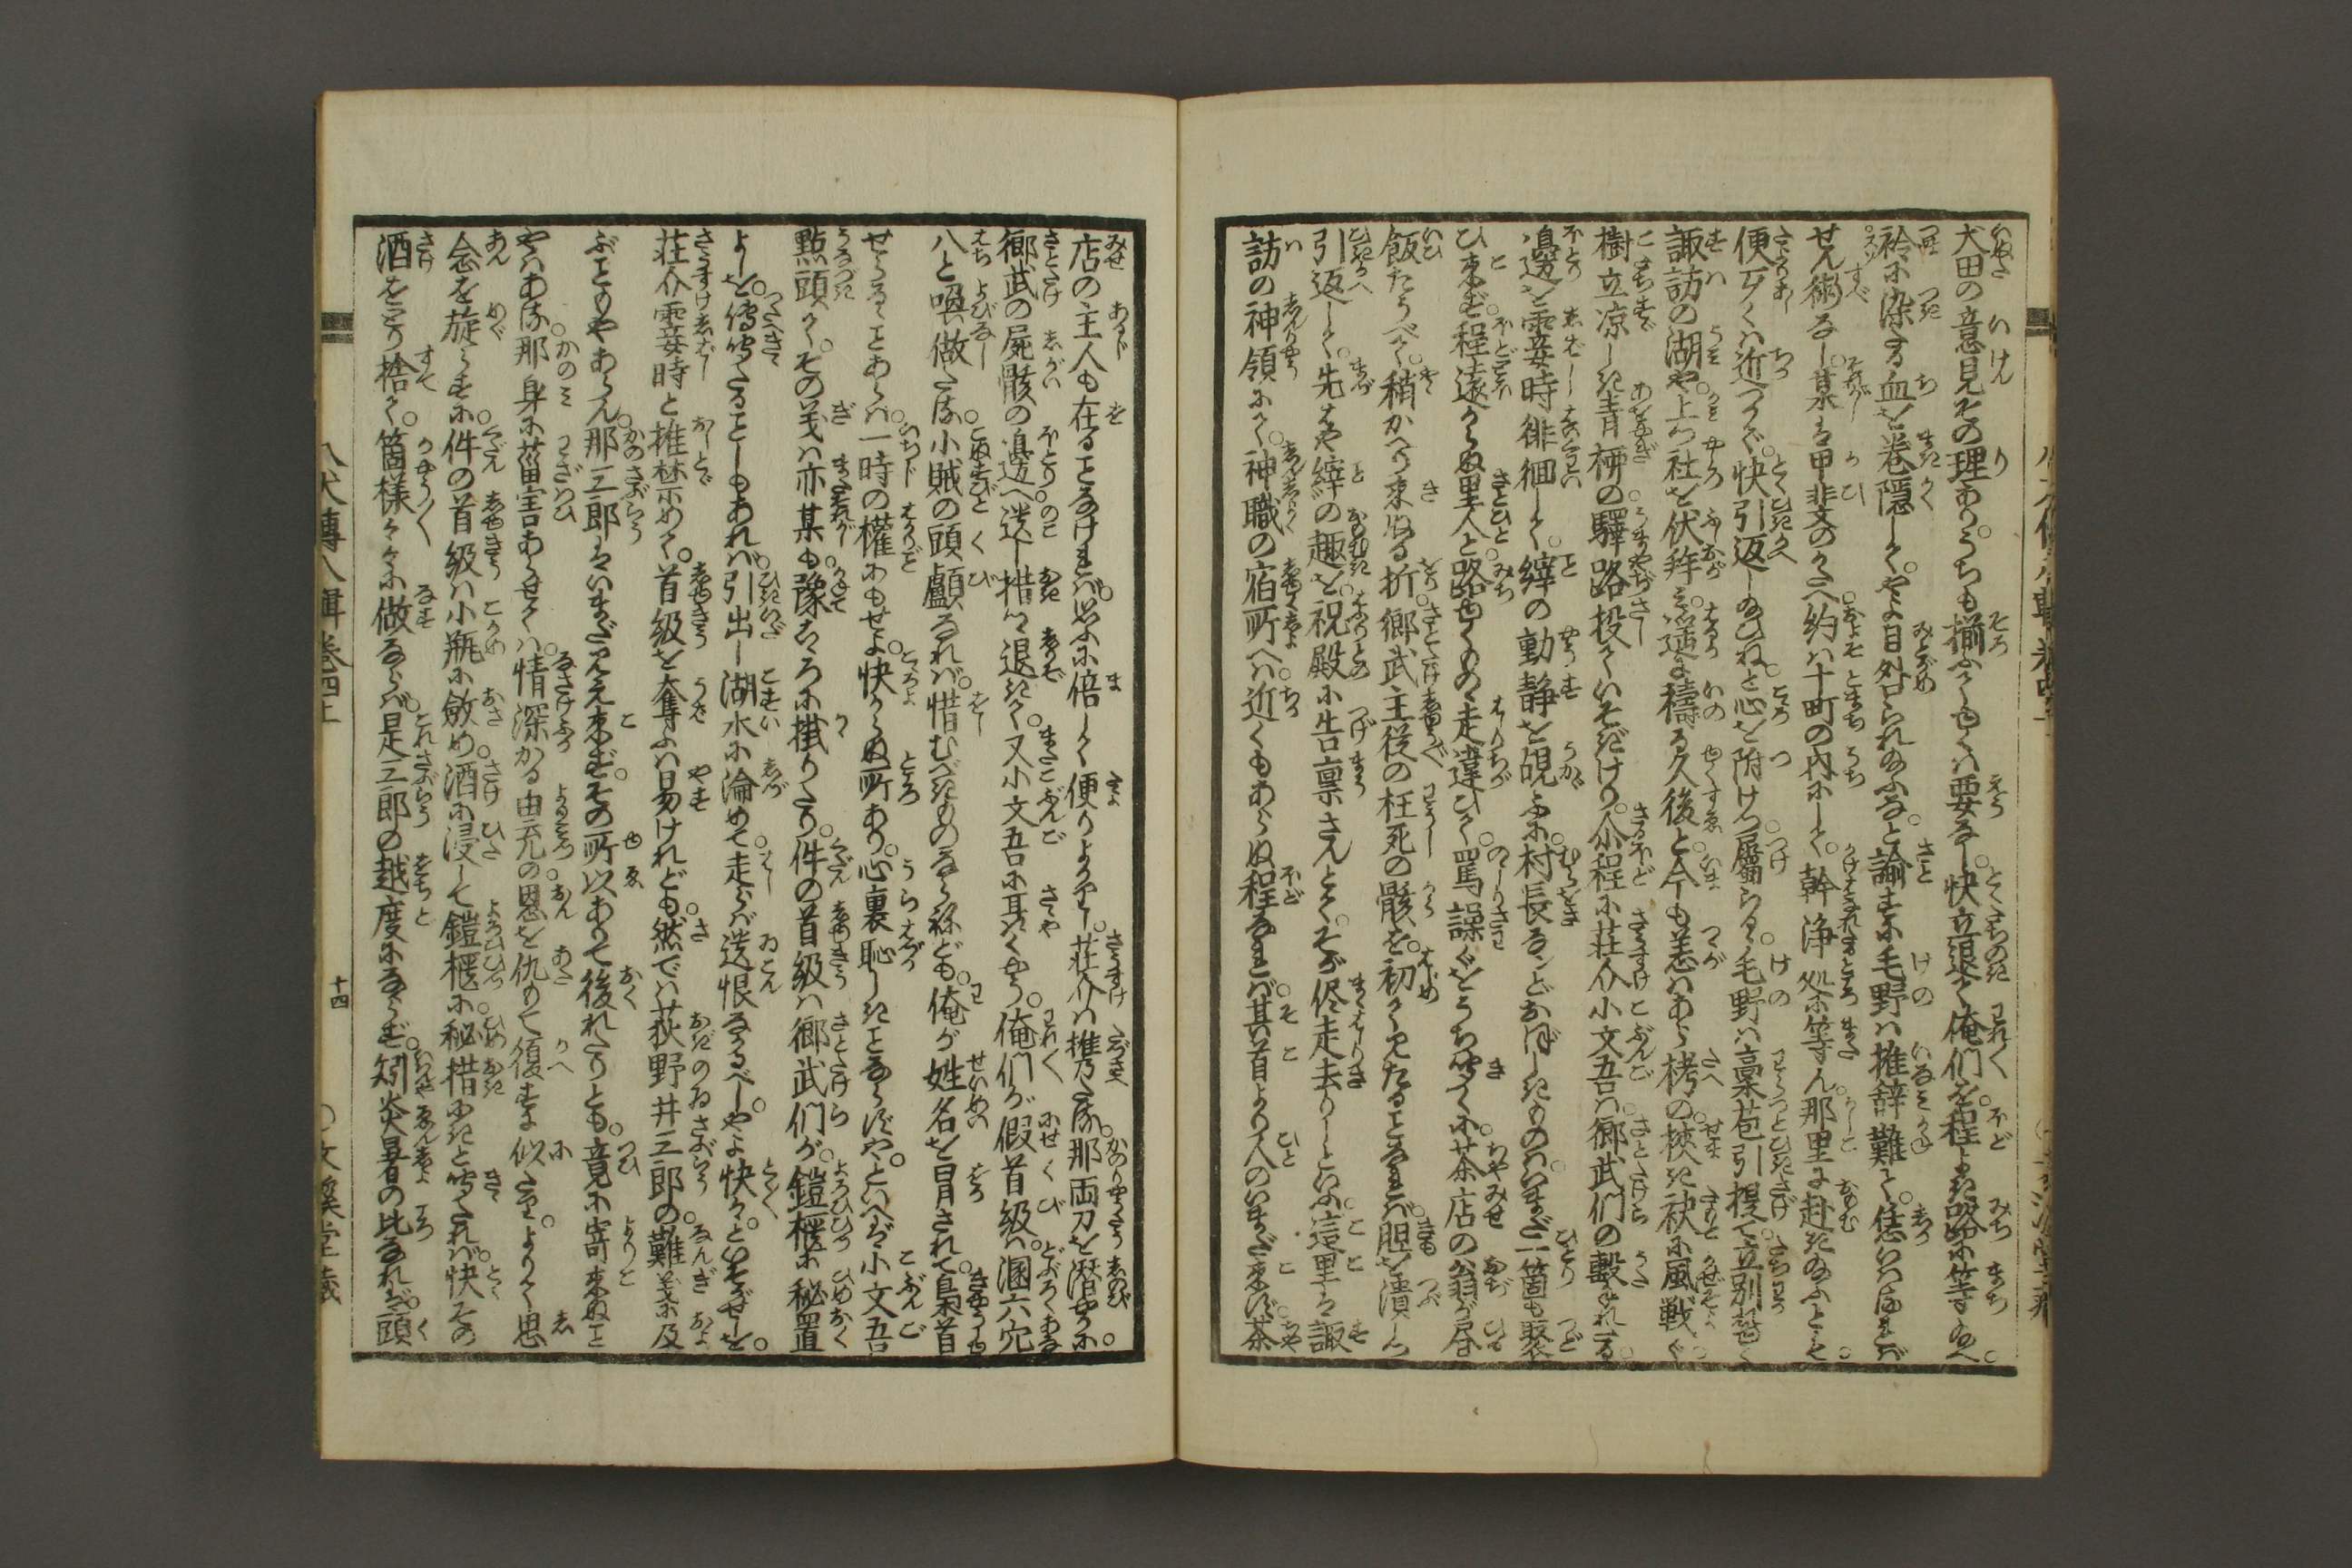 犬田の意見その理あり。うちも揃ふてゆくは要なし。快立退て俺們を。程よき路に等ゐへ。
衿に染する血を巻隠して。やよ目外られ給ふな。と諭すに毛野は推辞難て。恁いはるれば
せん術なし。某は甲斐のかたへ約は十町の内にして。幹浄処に等ん。那里に赴き給ふとも。
便アしくは近つかで。快引返し給ひね。と心を附けつ属らるゝ。毛野は藁苞引提て立別れてゆく
諏訪の湖や。上つ社を伏拝み。遥に禱る久後と。今も恙はあら栲の。狭き袂に風戦ぐ。
樹立涼しき青柳の驛路投ていそぎけり。尒程に荘介小文吾は。郷武們の撃れたる。
邊を霎時徘徊して。縡の動静を覘ふに。村長なンどおぼしきものは。いまだ一箇も聚
ひ來ず。程遠からぬ里人と。路ゆくものゝ走違ひて。罵譟ぐをうち聞くに。茶店の翁が昼
飯たうべて。稍かへり來ぬる折。郷武主従の枉死の骸を。初て見たることなれば。胆を潰しつ
引返して。先はや縡の趣を。祝殿に告稟さんとて。そが侭走去りしといふ。這里は諏
訪の神領にて。神職の宿所へは。近くもあらぬ程なれば。其首より人のいまだ來ず。茶
店の主人も在ることなければ。此に倍して便りよかりし。荘介は携たる。那両刀を潜やかに。
郷武の屍骸の邊へ。遺し措つゝ退きて。又小文吾に耳語くやう。俺們が假首級。溷六穴
八と喚做たる。小賊の頭顱なれば。惜むべきものならねども。俺が姓名を冒されて。梟首
せらるゝことあらば。一時の權にもせよ。快からぬ所あり。心裏恥しきことならずや。といへば小文吾
點頭て。その義は亦某も。豫こゝろに掛りたり。件の首級は郷武們が。鎧櫃に秘置
よしを。傳聞たることしもあれば。引出し湖水に淪めて。走らば遺恨なかるべし。やよ快々。といそがせしを。
荘介霎時と推禁めて。首級を奪ふは易けれども。然では荻野井三郎の。難義に及
ぶこともやあらん。那三郎はいまだ見え來ず。その所以ありて後れたりとも。竟に寄來ぬこと
やはある。那身に菑害あらせては。情深かる由充の。恩を仇もて復すに似たり。よりて思
念を旋らすに。件の首級は小瓶に斂め。酒に浸して鎧櫃に。秘措にきと聞たれば。快その
酒をとり捨て。箇様々々に做ならば。是三郎の越度にならず。矧炎暑の比なれば。頭
八犬傳八輯巻四上
十四
○文溪堂藏